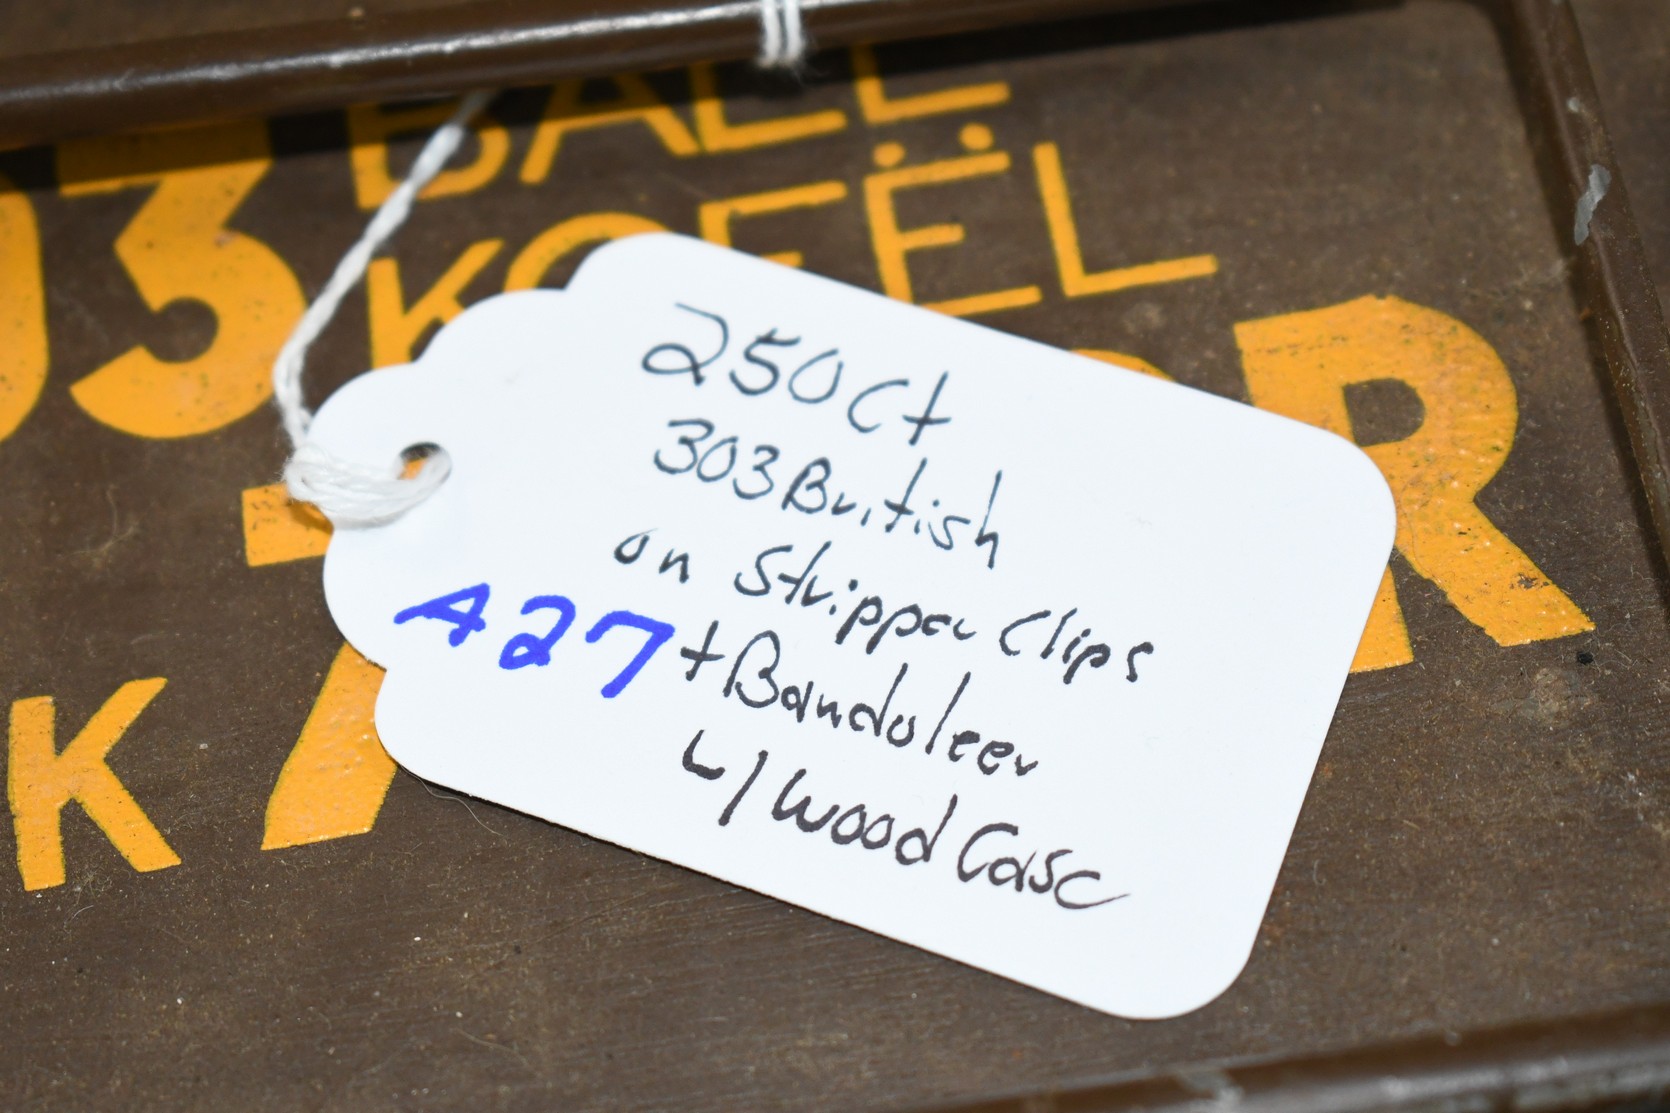 03 BALL
KOFËL
R
K 7
250 Ct
303 British
on Stripper Clips
A27 + Bandoleer
w/ Wood Case